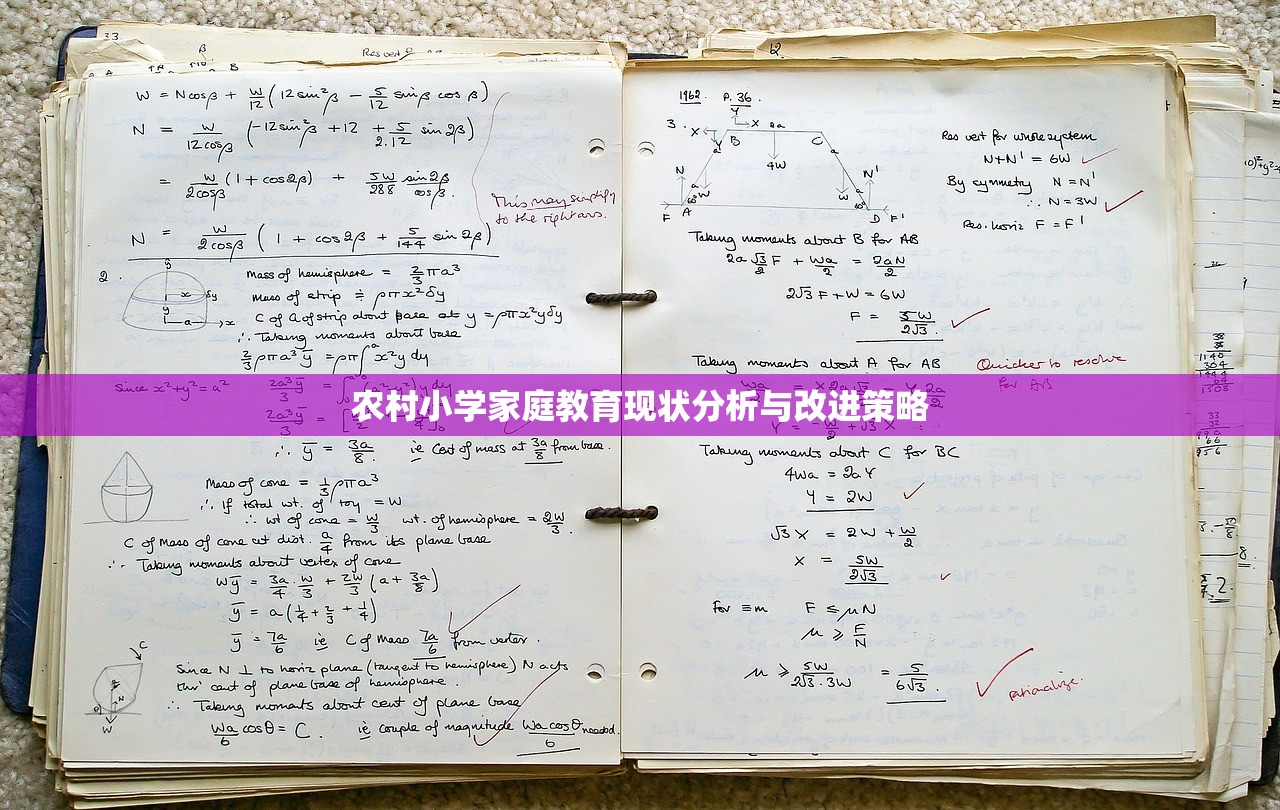 33.
β
W = N cos β + W/12 (12 sin²β − 5/12 sin β cos β)
N = W/12 cos β (−12 sin²β + 12 + 5/2.12 sin 2β)
= W/2cosβ (1 + cos 2β) + 5W/288 sin 2β/cos β.
This may simplify
to the right ans.
N = W/2cosβ (1 + cos 2β + 5/144 sin 2β)
2.
Mass of hemisphere = 2/3 πa³
mass of strip ≑ ρπx²δy
C of G of strip about base at y = ρπx²yδy
∴ Taking moments about base
2/3 ρπa³ȳ = ρπ∫ᵃx²y dy
since x²+y² = a²
农村小学家庭教育现状分析与改进策略
∴ ȳ = 3a/8 ie Cent of mass at 3a/8 from base.
Mass of cone = 1/3 ρπa³
∴ If total wt. of toy = W
∴ wt of cone = W/3 wt. of hemisphere = 2W/3.
C of Mass of cone at dist. a/4 from its plane base
∴ Taking moments about vertex of cone
Wȳ = 3a/4 . W/3 + 2W/3 (a + 3a/8)
ȳ = a(1/4 + 2/3 + 1/4)
ȳ = 7a/6 ie C of Mass 7a/6 from vertex.
Since N ⊥ to horiz plane (tangent to hemisphere) N acts
thro' cent of plane base of hemisphere.
∴ Taking moments about cent of plane base
Wa/6 cos θ = C. ie couple of magnitude Wa cos θ/6 needed.
1962. P. 36.
3.
Res vert for whole system
N+N' = 6W
By symmetry N = N'
∴ N = 3W
Res. horiz F = F'
Taking moments about B for AB
2a √3/2 F + Wa/2 = 2aN/2
2√3 F + W = 6W
F = 5W/2√3.
Taking moments about A for AB
Quicker to resolve
for AB
Taking moments about C for BC
4Wa = 2aY
Y = 2W
√3 X = 2W + W/2
X = 5W/2√3
For ≡m F ≤ μN
μ ≥ F/N
μ ≥ 5W/2√3.3W = 5/6√3.
rationalize.